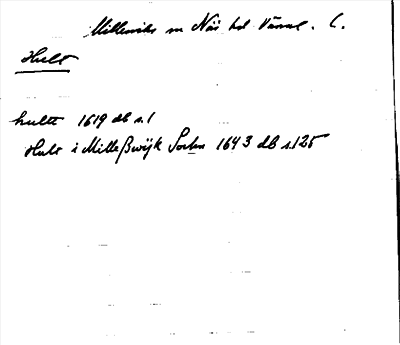 Millesviks sn Näs hd Värml. L.
Hult
hultt 1619 db s.1
Hult i Milleßwijk Sochn 1643 db s.125